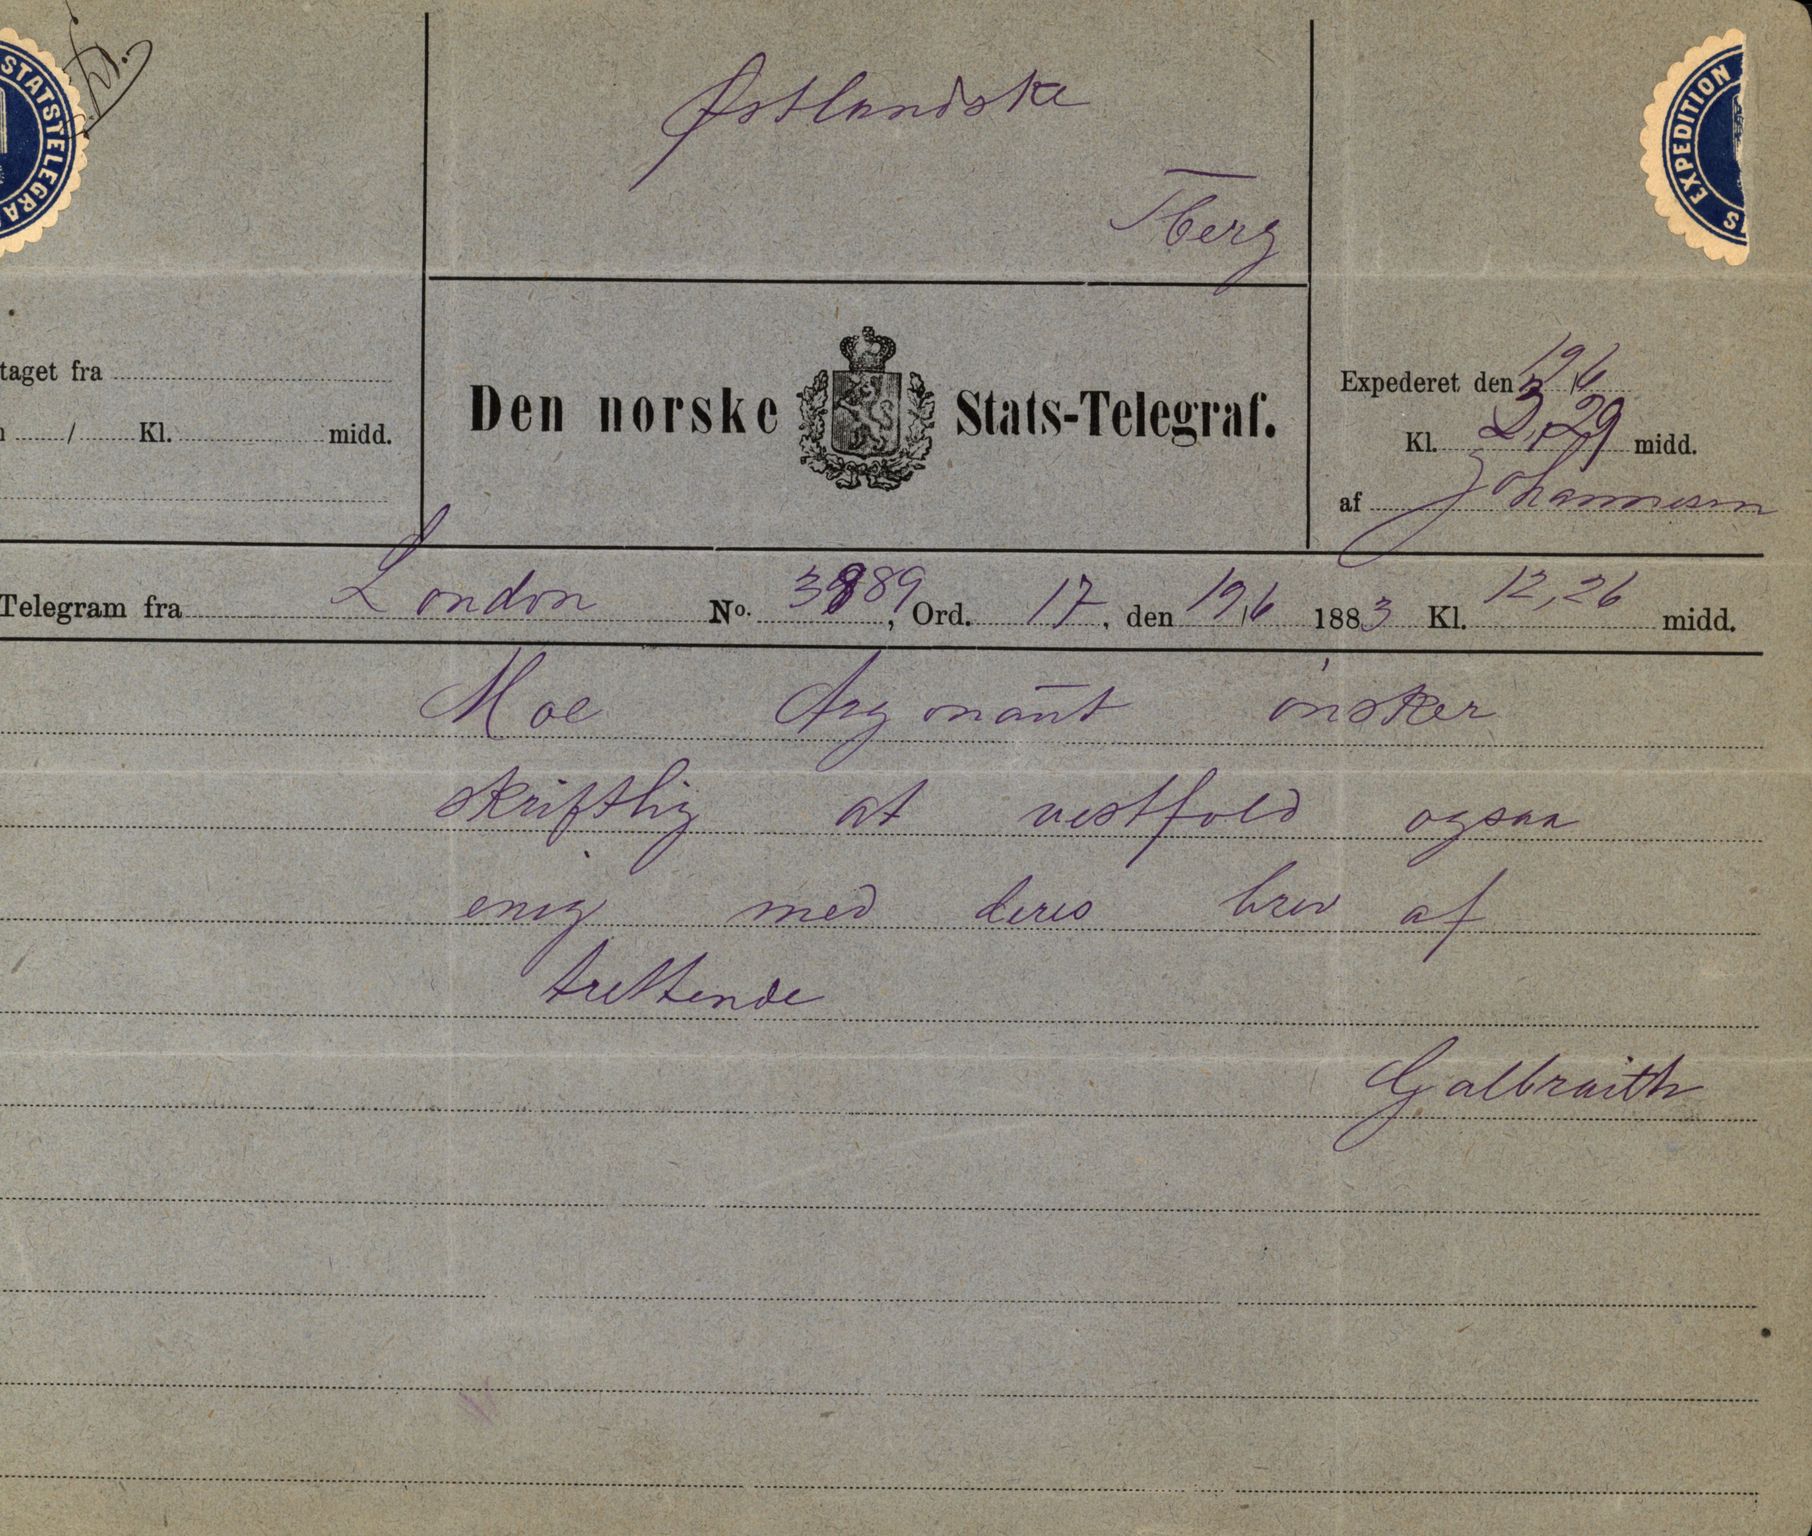 STATSTELEGRA
Østlandske
Tberg
S EXPEDITION
taget fra
/ Kl. midd.
Den norske Stats-Telegraf.
Expederet den 19/6
Kl. 3,29 midd.
af Johannesen
Telegram fra London No. 3889, Ord. 17, den 19/6 1883 Kl. 12,26 midd.
Moe Argonaut ønsker
skriftlig at vestfold ogsaa
enig med deres brev af
trettende
Galbraith